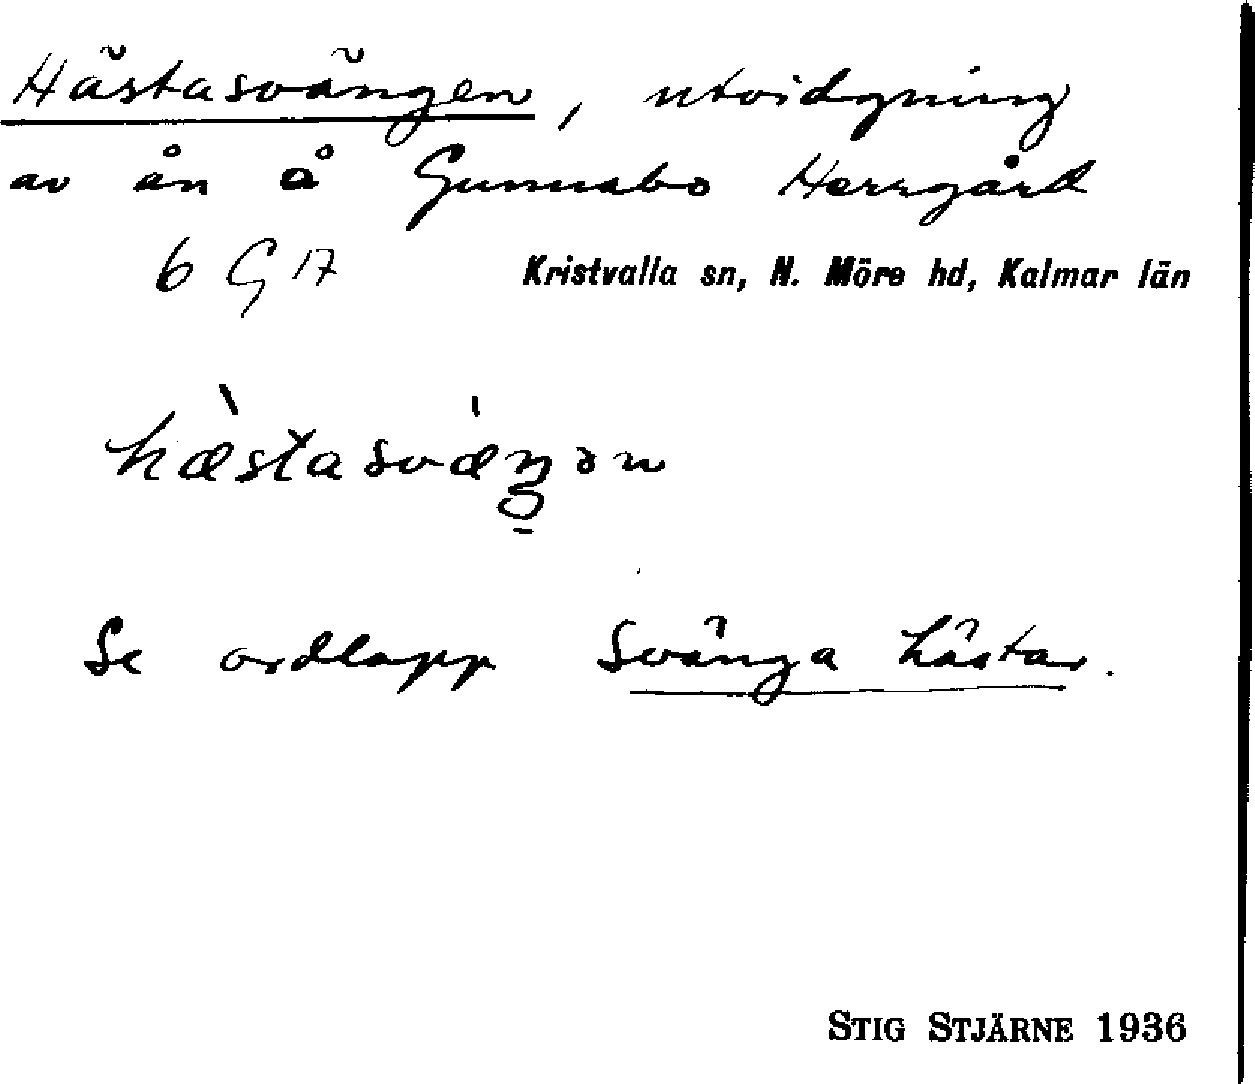 Hästasvängen, utvidgning
av ån å Gunnabo Herrgård
6 G 17 Kristvalla sn, N. Möre hd, Kalmar län
hæ̀stasvæ̍ŋən
Se ordlapp Svänga hästar.
STIG STJÄRNE 1936